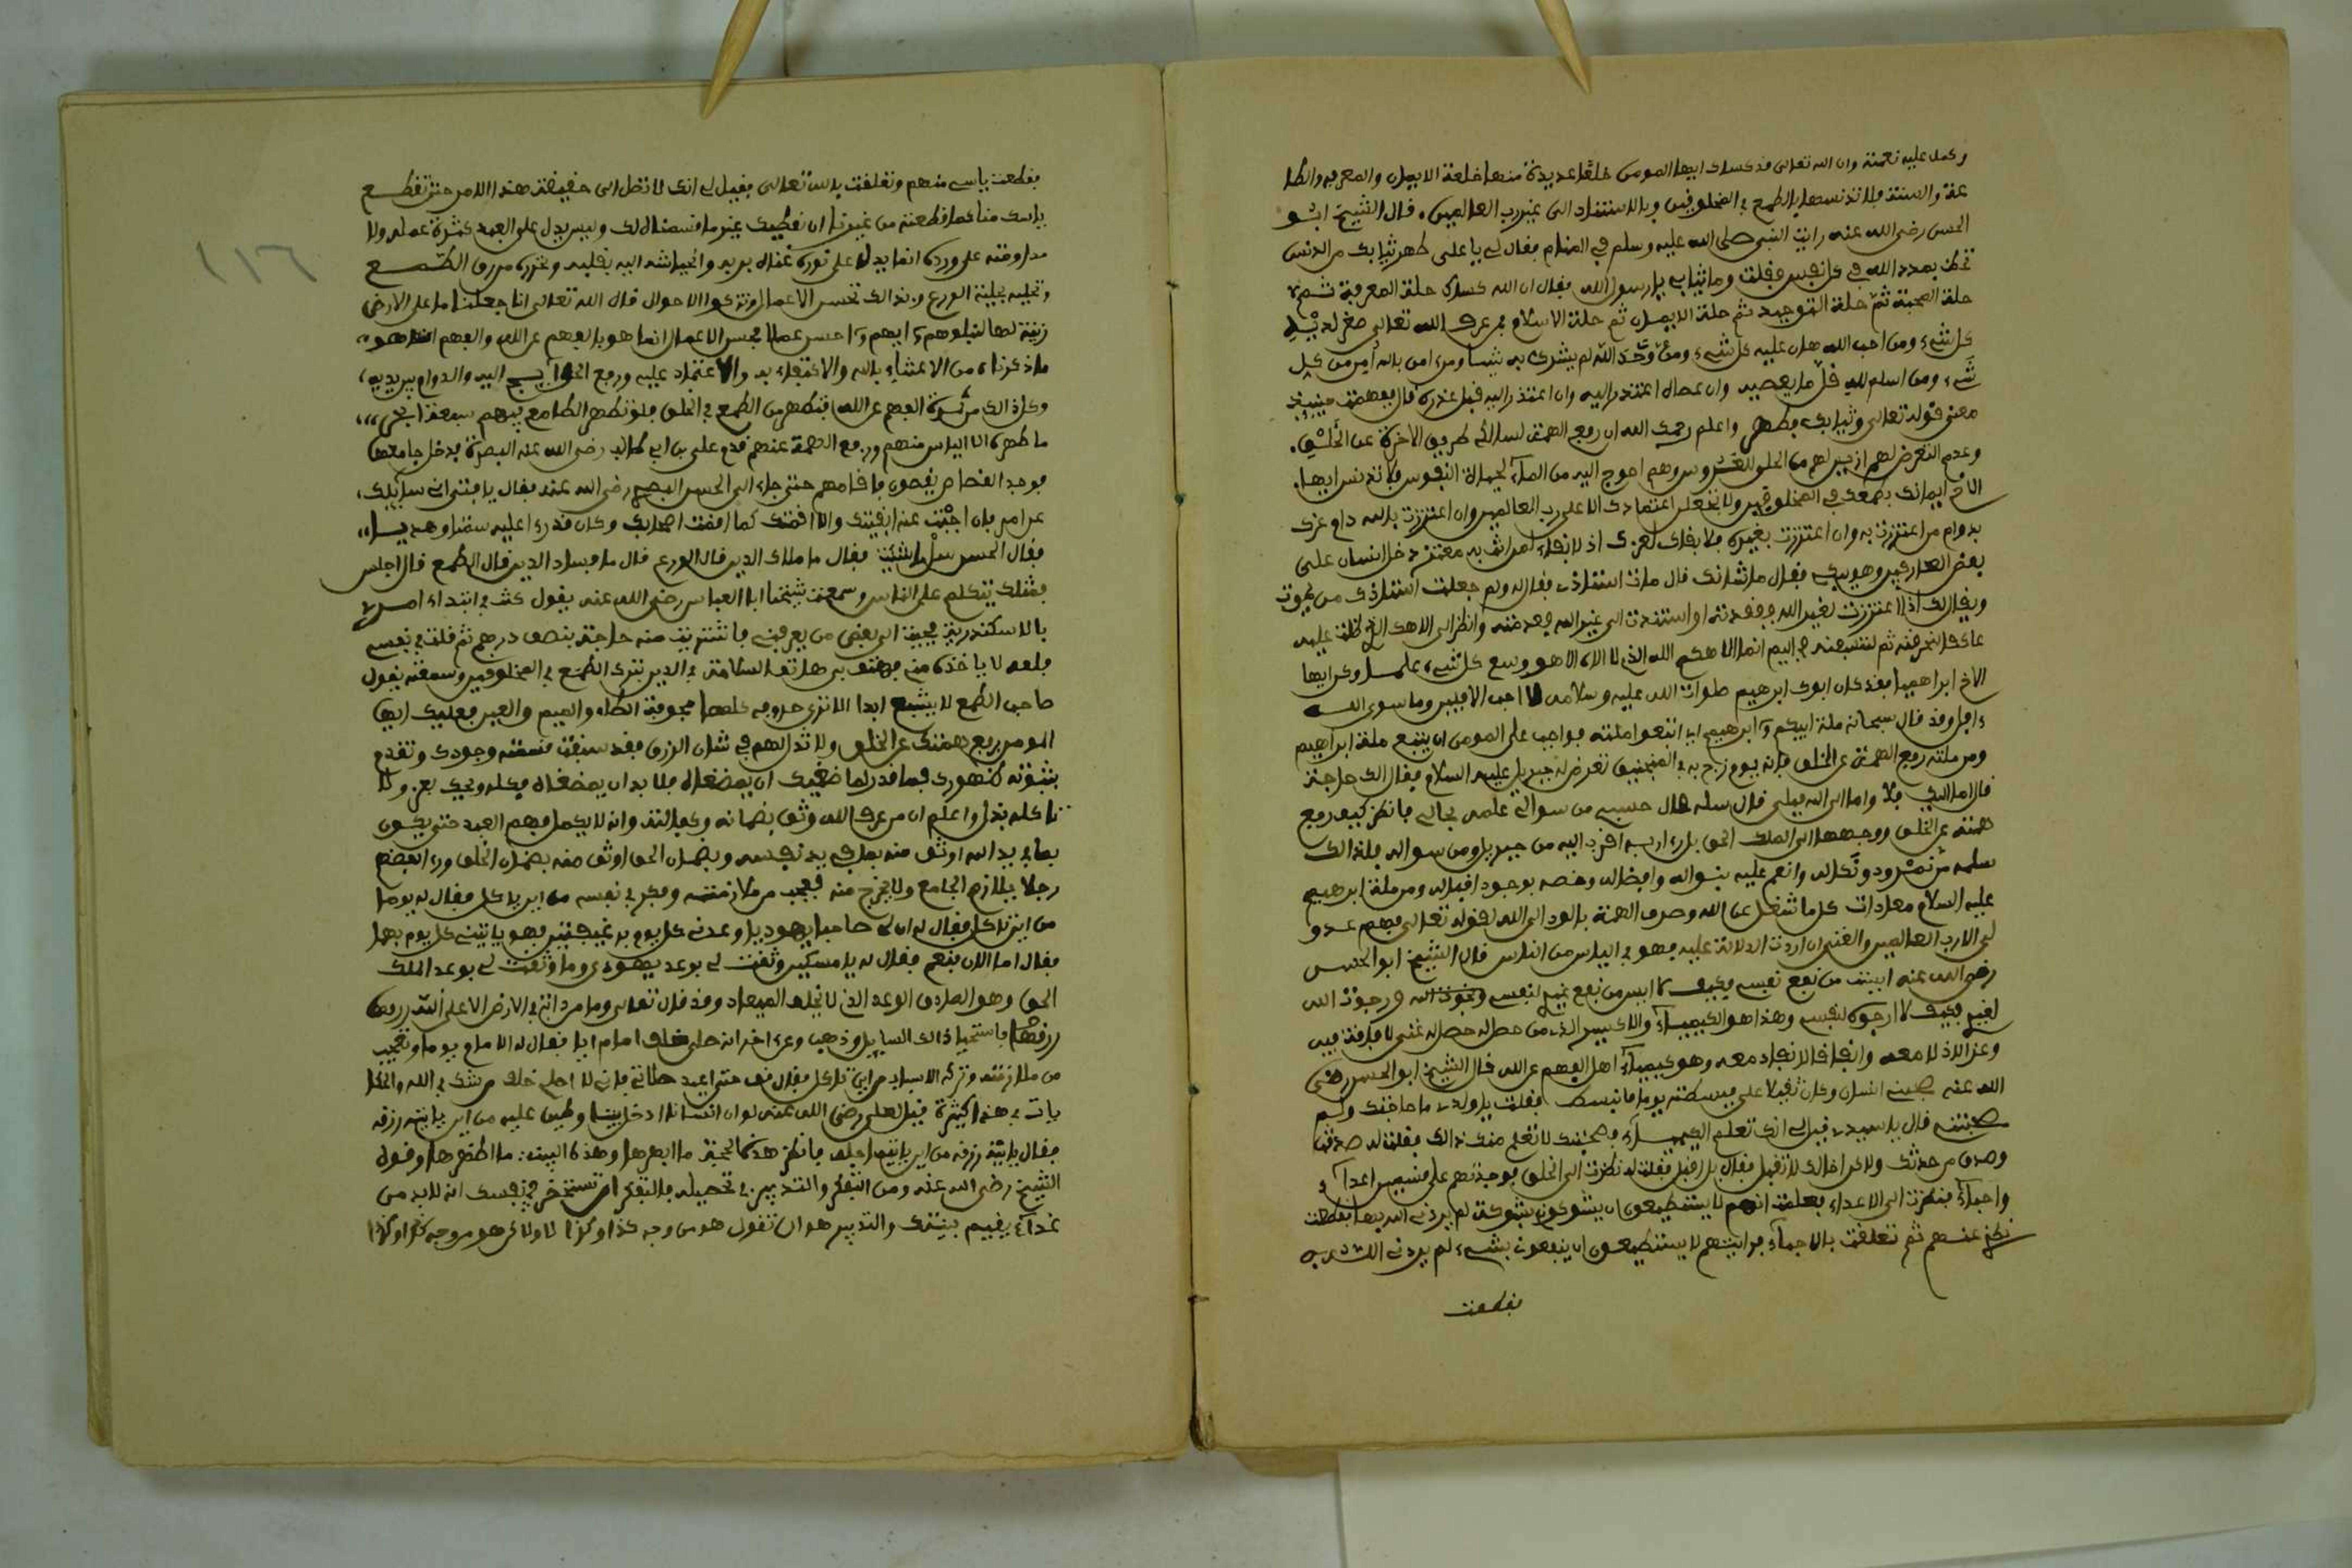 وكمل عليه نعمته وان الله تعالى قد كساك ايها المومن خلعا عديدة منها خلعة الايمان والمعرفة والطا
عة والسنة فلا تدنسها بالطمع في المخلوقين وبالاستناد الى غير رب العالمين قال الشيخ ابو
الحسن رضى الله عنه رايت النبي صلى الله عليه وسلم في المنام فقال لي يا على طهر ثيابك من الدنس
تحظ بمدد الله في كل نفس فقلت وما ثيابي يا رسول الله فقال ان الله كساك حلة المعرفة ثم
حلة المحبة ثم حلة التوحيد ثم حلة الايمان ثم حلة الاسلام فمن عرف الله تعالى صغر لديه
كل شيء ومن احب الله هان عليه كل شيء ومن وحد الله لم يشرك به شيئا ومن امن بالله امن من كل
شيء ومن اسلم لله قل ما يعصيه وان عصاه اعتذر اليه وان اعتذر اليه قبل عذره قال ففهمت حينيذ
معنى قوله تعالى وثيابك فطهر واعلم رحمك الله ان رفع الهمة لسالك طريق الاخرة عن الخلق
وعدم التعرض لهم ازين لهم من الحلي للعروس وهم احوج اليه من الماء لحياة النفوس فلا تدنس ايها
الاخ ايمانك بطمعك في المخلوقين ولا تجعل اعتمادك الا على رب العالمين وان اعتززت بالله دام عزك
بدوام من اعتززت به وان اعتززت بغيره فلا بقاء لعزك اذ لا بقاء لمن انت به معتز دخل انسان على
بعض العارفين وهو يبكي فقال ما شانك قال مات استاذي فقال له ولم جعلت استاذك من يموت
ويقال لك اذا اعتززت بغير الله ففقدته او استندت الى غير الله فعدمته وانظر الى الاهك الذي ظلت عليه
عاكفا لنحرقنه ثم لننسفنه في اليم انما الاهكم الله الذي لا اله الا هو وسع كل شيء علما وكن ايها
الاخ ابراهيميا فقد كان ابوك ابرهيم صلوات الله عليه وسلامه لا احب الافلين وما سوى الله
ءافل وقد قال سبحانه ملة ابيكم ابرهيم اي اتبعوا ملته فواجب على المومن ان يتبع ملة ابراهيم
ومن ملته رفع الهمة عن الخلق فانه يوم زج به في المنجنيق تعرض له جبريل عليه السلام فقال الك حاجة
قال اما اليك فلا واما الى الله فبلى قال سله قال حسبي من سوالي علمه بحالي فانظر كيف رفع
همته عن الخلق ووجهها الى الملك الحق بل راى ربه اقرب اليه من جبريل ومن سواله فلذالك
سلمه من نمرود ونكاله وانعم عليه بنواله وافضاله وخصه بوجود اقباله ومن ملة ابرهيم
عليه السلام معادات كل ما شغل عن الله وصرف الهمة بالود الى الله لقوله تعالى فهم عدو
لي الا رب العالمين والغنى ان اردت الدلالة عليه فهو في الياس من الناس قال الشيخ ابو الحسن
رضى الله عنه ايست من نفع نفسي فكيف لا ايس من نفع غيري لنفسي ورجوت الله
لغيري فكيف لا ارجوه لنفسي وهذا هو الكيمياء والاكسير الذي من حصل له حصل له غنى لا فاقة فيه
وعز الاذل معه وانفاقا لا نفاد معه وهو كيمياء اهل الفهم عن الله قال الشيخ ابو الحسن رضى
الله عنه صحبني انسان وكان ثقيلا علي فبسطته يوما فانبسط فقلت يا ولدي ما حاجتك ولم
صحبتني قال يا سيدي قيل لي انك تعلم الكيمياء فصحبتك لاتعلم منك ذالك فقلت له صدقت
وصدق من حدثك ولاكن اخالك لا تقبل فقال بل اقبل فقلت له نظرت الى الخلق فوجدتهم على قسمين اعداء
واحباء فنظرت الى الاعداء فعلمت انهم لا يستطيعون ان يشوكوني بشوكة لم يردني الله بها فقطعت
نظري عنهم ثم تعلقت بالاحباء فرايتهم لا يستطيعون ان ينفعوني بشيء لم يردني الله به
فقطعت
فقطعت ياسي منهم وتعلقت بالله تعالى فقيل لي انك لا تصل الى حقيقة هذا الامر حتى تقطع
ياسك منا كما قطعته من غيرنا ان نعطيك غير ما قسمنا لك وليس يدل على العبد كثرة عمله ولا
مداومته على ورده انما يدل على نوره غناه بربه وانحياشه اليه بقلبه وتحرره من رق الطمع
وتحليه بحلية الورع وبذالك تحسن الاعمال وتزكوا الاحوال قال الله تعالى انا جعلنا ما على الارض
زينة لها لنبلوهم ايهم احسن عملا فحسن الاعمال انما هو بالفهم عن الله والفهم هو
ما ذكرناه من الاغتناء بالله والاكتفاء به والاعتماد عليه ورفع الحوايج اليه والدوام بين يديه
وكل ذالك من ثمرة الفهم عن الله فتطهر من الطمع في الخلق فلو تطهر الطامع فيهم بسبعة ابحر
ما طهره الا الياس منهم ورفع الهمة عنهم قدم على بن ابي طالب رضى الله عنه البصرة فدخل جامعها
فوجد القصاص يقصون فاقامهم حتى جاء الى الحسن البصري رضى الله عنه فقال يا فتى اني سايلك
عن امر فان اجبت عنه ابقيتك والا اقمتك كما اقمت اصحابك وكان قد راى عليه سمتا وهديا
فقال الحسن سل ما شيت فقال ما ملاك الدين قال الورع قال ما فساد الدين قال الطمع قال اجلس
فمثلك يتكلم على الناس وسمعت شيخنا ابا العباس رضى الله عنه يقول كنت في ابتداء امري
بالاسكندرية فجيت الى بعض من يعرفني فاشتريت منه حاجة بنصف درهم ثم قلت في نفسي
فلعله لا ياخذه مني فهتف بي هاتف السلامة في الدين بترك الطمع في المخلوقين وسمعته يقول
صاحب الطمع لا يشبع ابدا الا ترى حروفه كلها مجوفة الطاء والميم والعين فعليك ايها
المومن برفع همتك عن الخلق ولا تذل لهم في شان الرزق فقد سبقت قسمته وجودك وتقدم
بثبوته ظهورك فما قدر لماضغيك ان يمضغاه فلا بد ان يمضغاه فكله ويحك بعز ولا
تاكله بذل واعلم ان من عرف الله وثق بضمانه وكفالته وانه لا يكمل فهم العبد حتى يكون
بما في يد الله اوثق منه بما في يد نفسه وبضمان الحق اوثق منه بضمان الخلق وراى بعضهم
رجلا يلازم الجامع ولا يخرج منه فعجب من ملازمته وفكر في نفسه من اين ياكل فقال له يوما
من اين تاكل فقال له ان لي صاحبا يهوديا وعدني كل يوم برغيفين فهو ياتيني كل يوم بهما
فقال اما الان فنعم فقال له يا مسكين وثقت لي بوعد يهودي وما وثقت لي بوعد الملك
الحق وهو الصادق الوعد الذي لا يخلف الميعاد وقد قال تعالى وما من دابة في الارض الا على الله رزقها
فاستحيا ذالك السايل وذهب وعن اخر انه صلى خلف امام اياما فقال له الامام يوما وتعجب
من ملازمته وتركه الاسباب من اين تاكل فقال قف حتى اعيد صلاتي فاني لا اصلي خلف من شك في الله والحكا
يات في هذا كثيرة قيل لعلي رضى الله عنه لو ان انسانا ادخل بيتا وطين عليه من اين ياتيه رزقه
فقال ياتيه رزقه من اين ياتيه اجله فانظر هذه الحجة ما ابهرها وهذه البينة ما اظهرها وقول
الشيخ رضى الله عنه ومن التفكر والتدبير في تحصيله فالتفكر ان تستحضر في نفسك انه لا بد من
غداء يقيم بنيتك والتدبير هو ان تقول هو من وجه كذا وكذا لا ولاكن هو من وجه كذا وكذا
١١٦